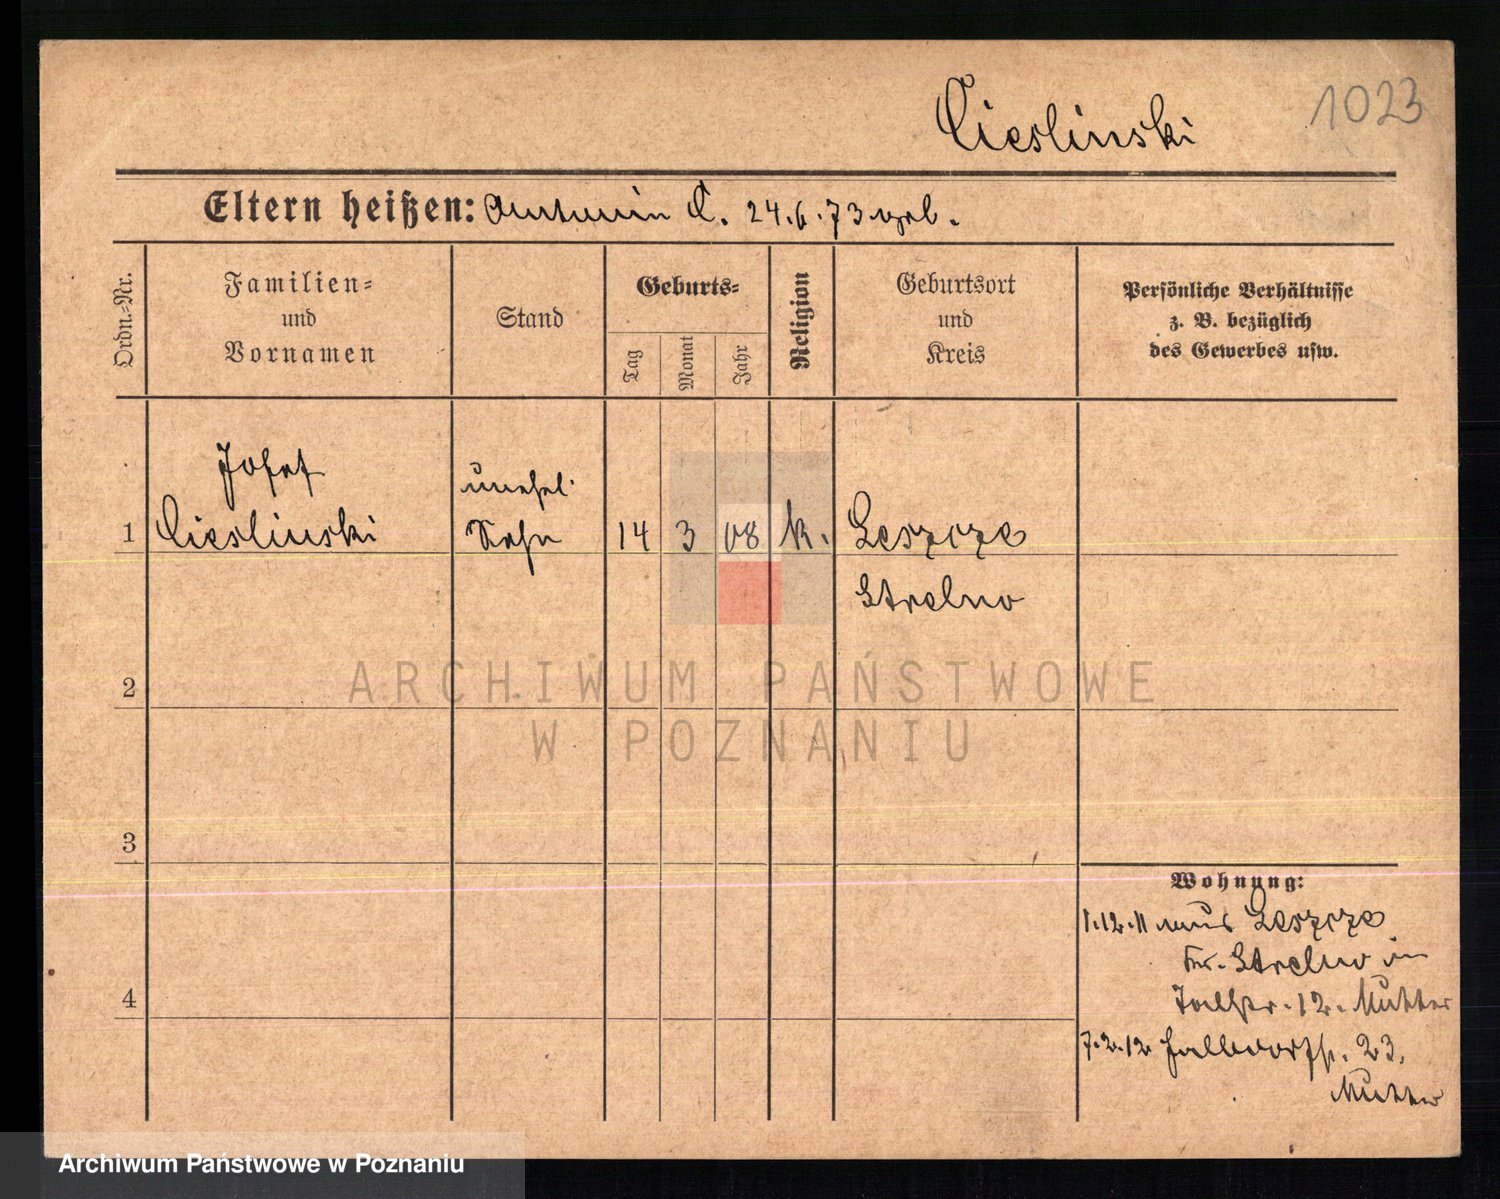 Cieslinski
1023
Eltern heißen: C. 24.6.73 geb.
Ordn.-Nr.
Familien-
und
Vornamen
Stand
Geburts-
Tag
Monat
Jahr
Religion
Geburtsort
und
Kreis
Persönliche Verhältnisse
z. B. bezüglich
des Gewerbes usw.
Josef
unehel.
1 Cieslinski Sohn 14 3 08 k. Leszcze
Strelno
ARCHIWUM PAŃSTWOWE
W POZNANIU
2
3
4
Wohnung:
1.12.11 aus Leszcze
Kr. Strelno in
12. Mutter
7.2.12 23.
Mutter
Archiwum Państwowe w Poznaniu